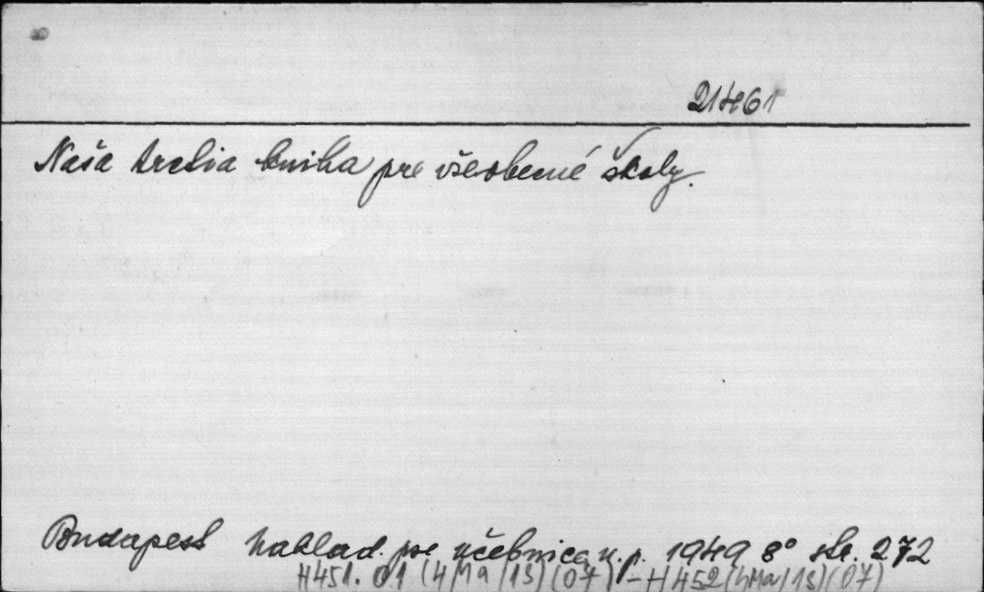 21461
Naša tretia kniha pre všeobecné školy.
Budapest Naklad. pre učebnice n. p. 1949 8° str. 272
H451.01 (4/Ma/13)(07) - H452 (4Ma/13)(07)